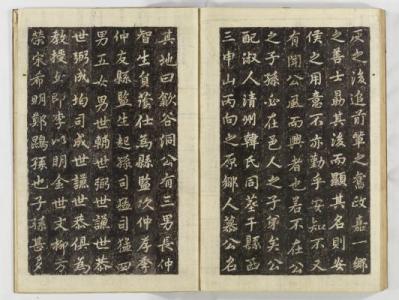 灰之後追前輩之舊政嘉一鄉
之善士易其後而顯其名則安
侯之用意不亦勤乎安知不又
有聞公風而興者也若不在公
之子孫必在邑人之子孫矣公
配淑人清州韓氏同葬于縣西
三申山丙向之原鄉人慕公名
其地曰歙谷洞公有三男長仲
智生員蔭仕為縣監次仲序季
仲友縣監生起孫司猛猛四
男五女男世輔世弼世謙世恭
世弼成均司成世謙世恭俱為
教授女即李以明金世文柳方
榮宋希明鄭鵾孫也子孫甚多